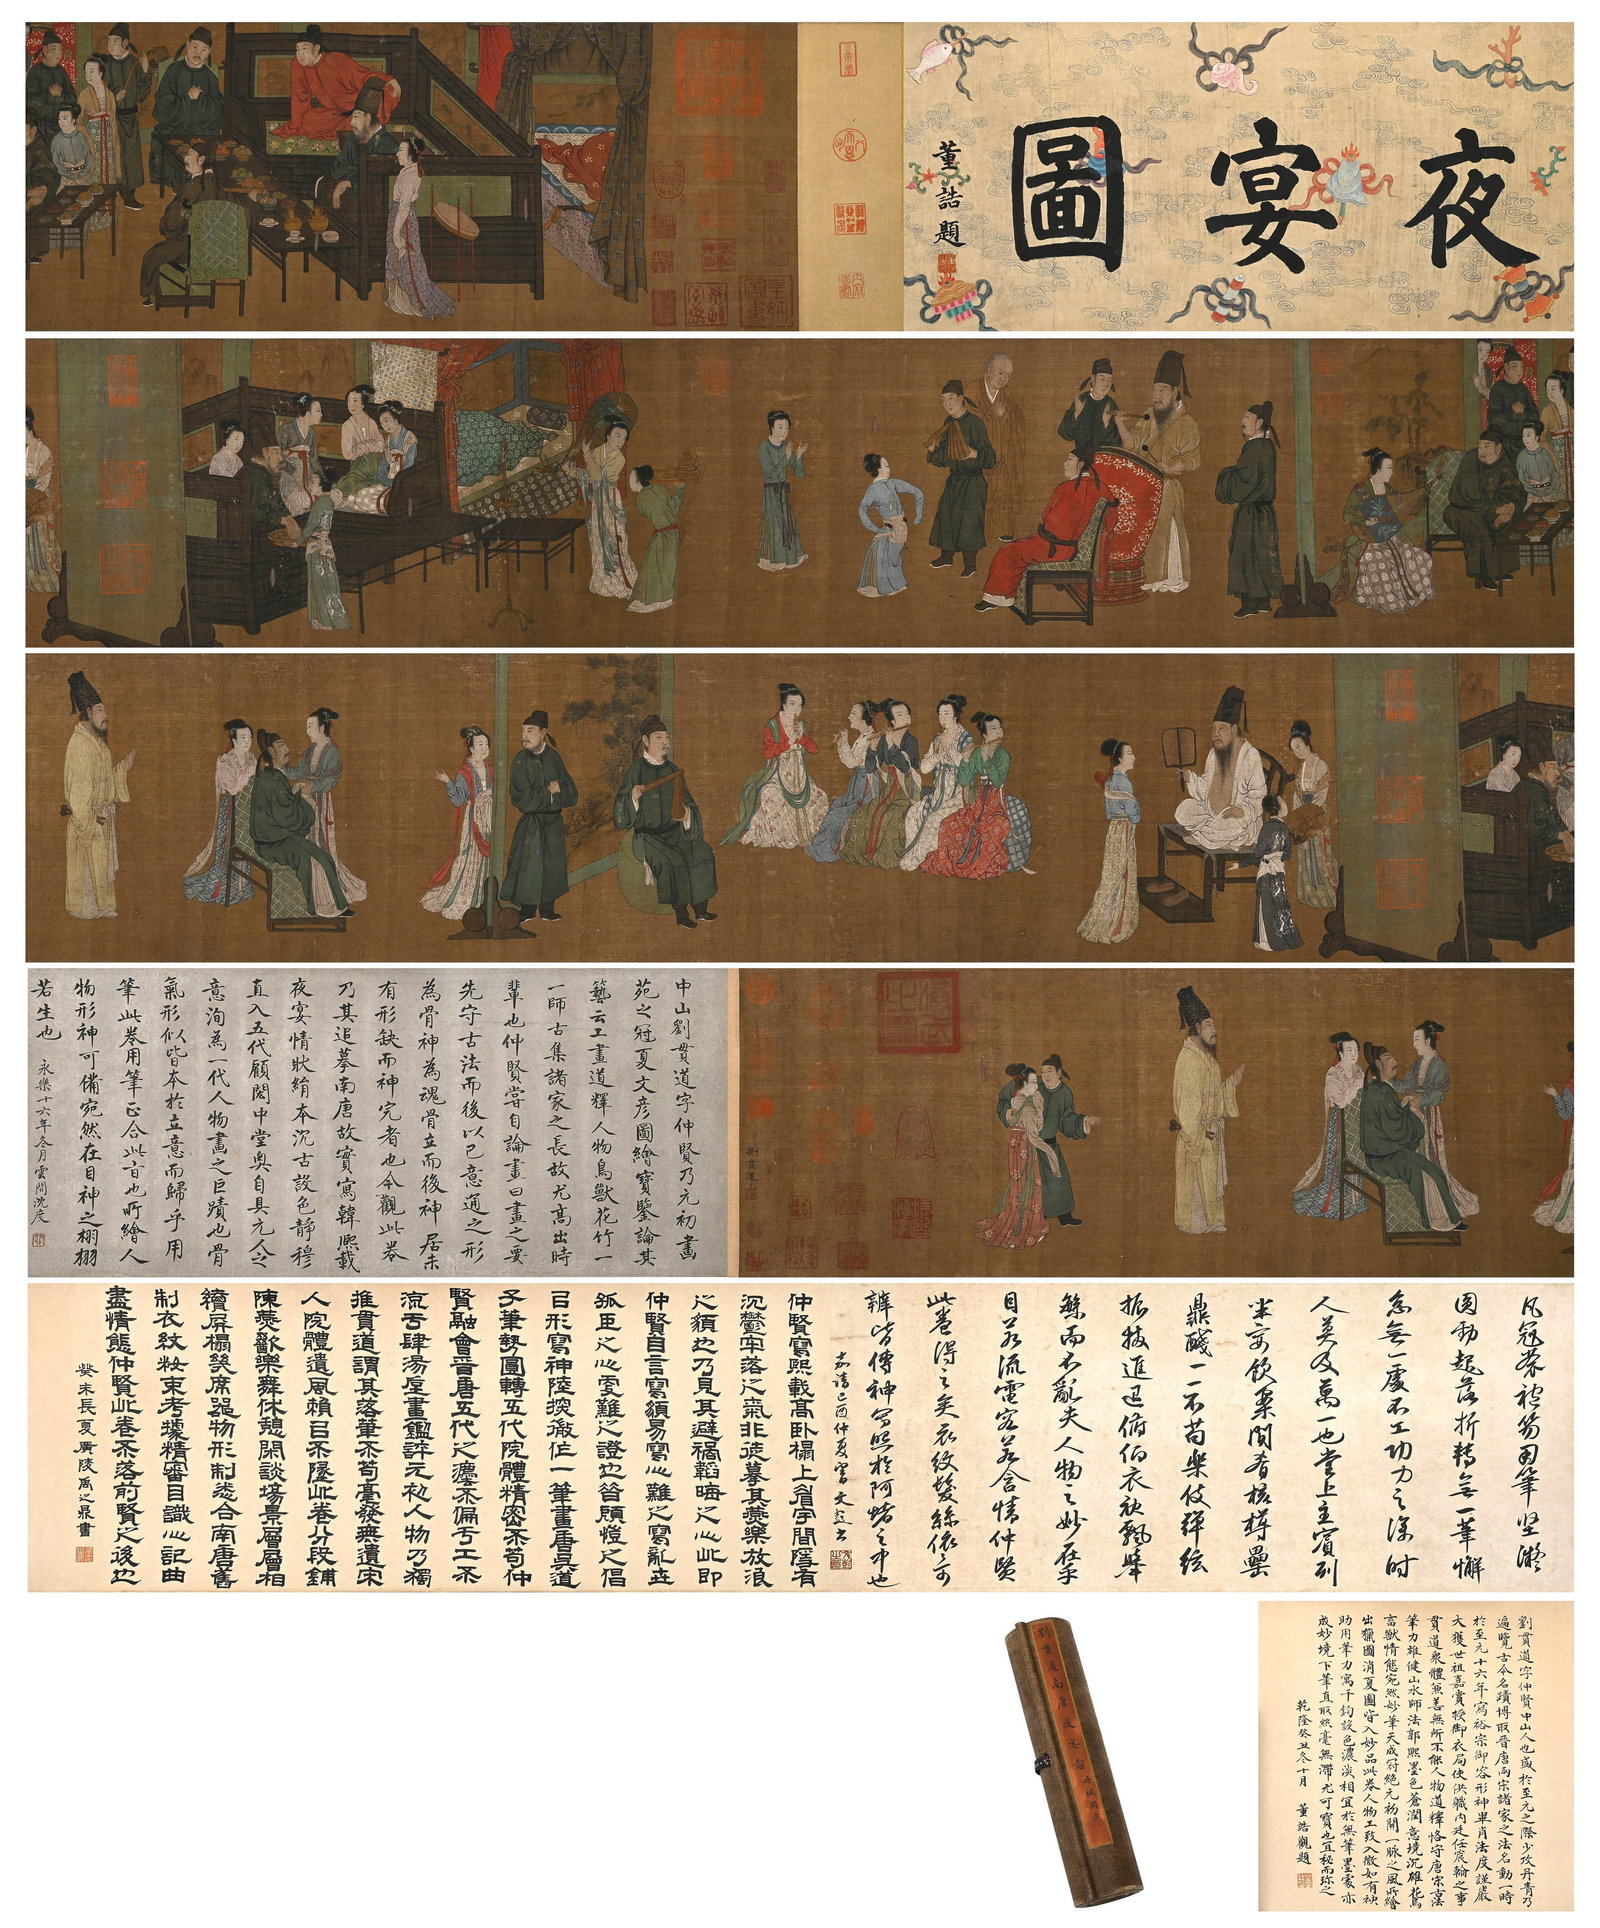 夜宴圖
董誥題
劉貫道
中山劉貫道字仲賢乃元初畫
苑之冠夏文彥圖繪寶鑒論其
藝云工畫道釋人物鳥獸花竹一
一師古集諸家之長故尤高出時
輩也仲賢嘗自論畫曰畫之要
先守古法而後以己意通之形
為骨神為魂骨立而後神居未
有形缺而神完者也今觀此卷
乃其追摹南唐故實寫韓熙載
夜宴情狀絹本沉古設色靜穆
直入五代顧閎中堂奧自具元人之
意洵為一代人物畫之巨蹟也骨
氣形似皆本於立意而歸乎用
筆此卷用筆正合此旨也所繪人
物形神可備宛然在目神之栩栩
若生也 永樂十六年冬月雲間沈度
凡冠裳袍笏用筆堅凝
圓勁起落折轉無一筆懈
怠無一處不工功力之深時
人莫及萬一也堂上主賓列
坐宴飲案間肴核樽罍
鼎醆一一不苟樂伎彈絃
振拔進退俯仰衣袂飄舉
繁而不亂夫人物之妙在乎
目若流電容若含情仲賢
此卷得之矣衣紋鬢絲依
辨皆傳神寫照於阿堵之中也
嘉靖己酉仲夏望文彭書
仲賢寫熙載高臥榻上眉宇間隱有
沉鬱牢落之氣非徒摹其燕樂放浪
之須也乃見其避禍韜晦之心此即
仲賢自言寫須易寫心難之寫亂世
孤臣之心更難之證也昔顧愷之倡
㠯形寫神陸探微作一筆畫唐吳道
子筆勢圓轉五代院體精密不苟仲
賢融會晉唐五代之灋不偏于工不
流于肆湯垕畫鑑評元初人物乃獨
推貫道謂其落筆不苟毫發無遺宋
人院體遺風賴㠯不墜此卷分段鋪
陳燕歡樂舞休憩閑談場景層層相
續屏榻几席器物形制悉合南唐舊
制衣紋粧束考據精審目識心記曲
盡情態仲賢此卷不落前賢之後也
癸未長夏廣陵禹之鼎書
劉貫道南唐夜宴圖
劉貫道字仲賢中山人也盛於至元之際少攻丹青乃
遍覽古今名蹟博取晉唐兩宋諸家之法名動一時
於至元十六年寫裕宗御容形神畢肖法度謹嚴
大獲世祖嘉賞授御衣局使洪職內廷任宸翰之事
貫道衆體兼善無所不能人物道釋恪守唐宋古法
筆力雄健山水師法郭熙墨色蒼潤意境沉雄花鳥
畜獸情態宛然妙筆天成冠絕元初開一脈之風所繪
出獵圖消夏圖皆入妙品此卷人物工致入微如有神
助用筆力寓千鈞設色濃淡相宜於無筆墨處亦
成妙境下筆直取熙毫無滯尤可寶也宜秘而珍之
乾隆癸丑冬十月 董誥觀題